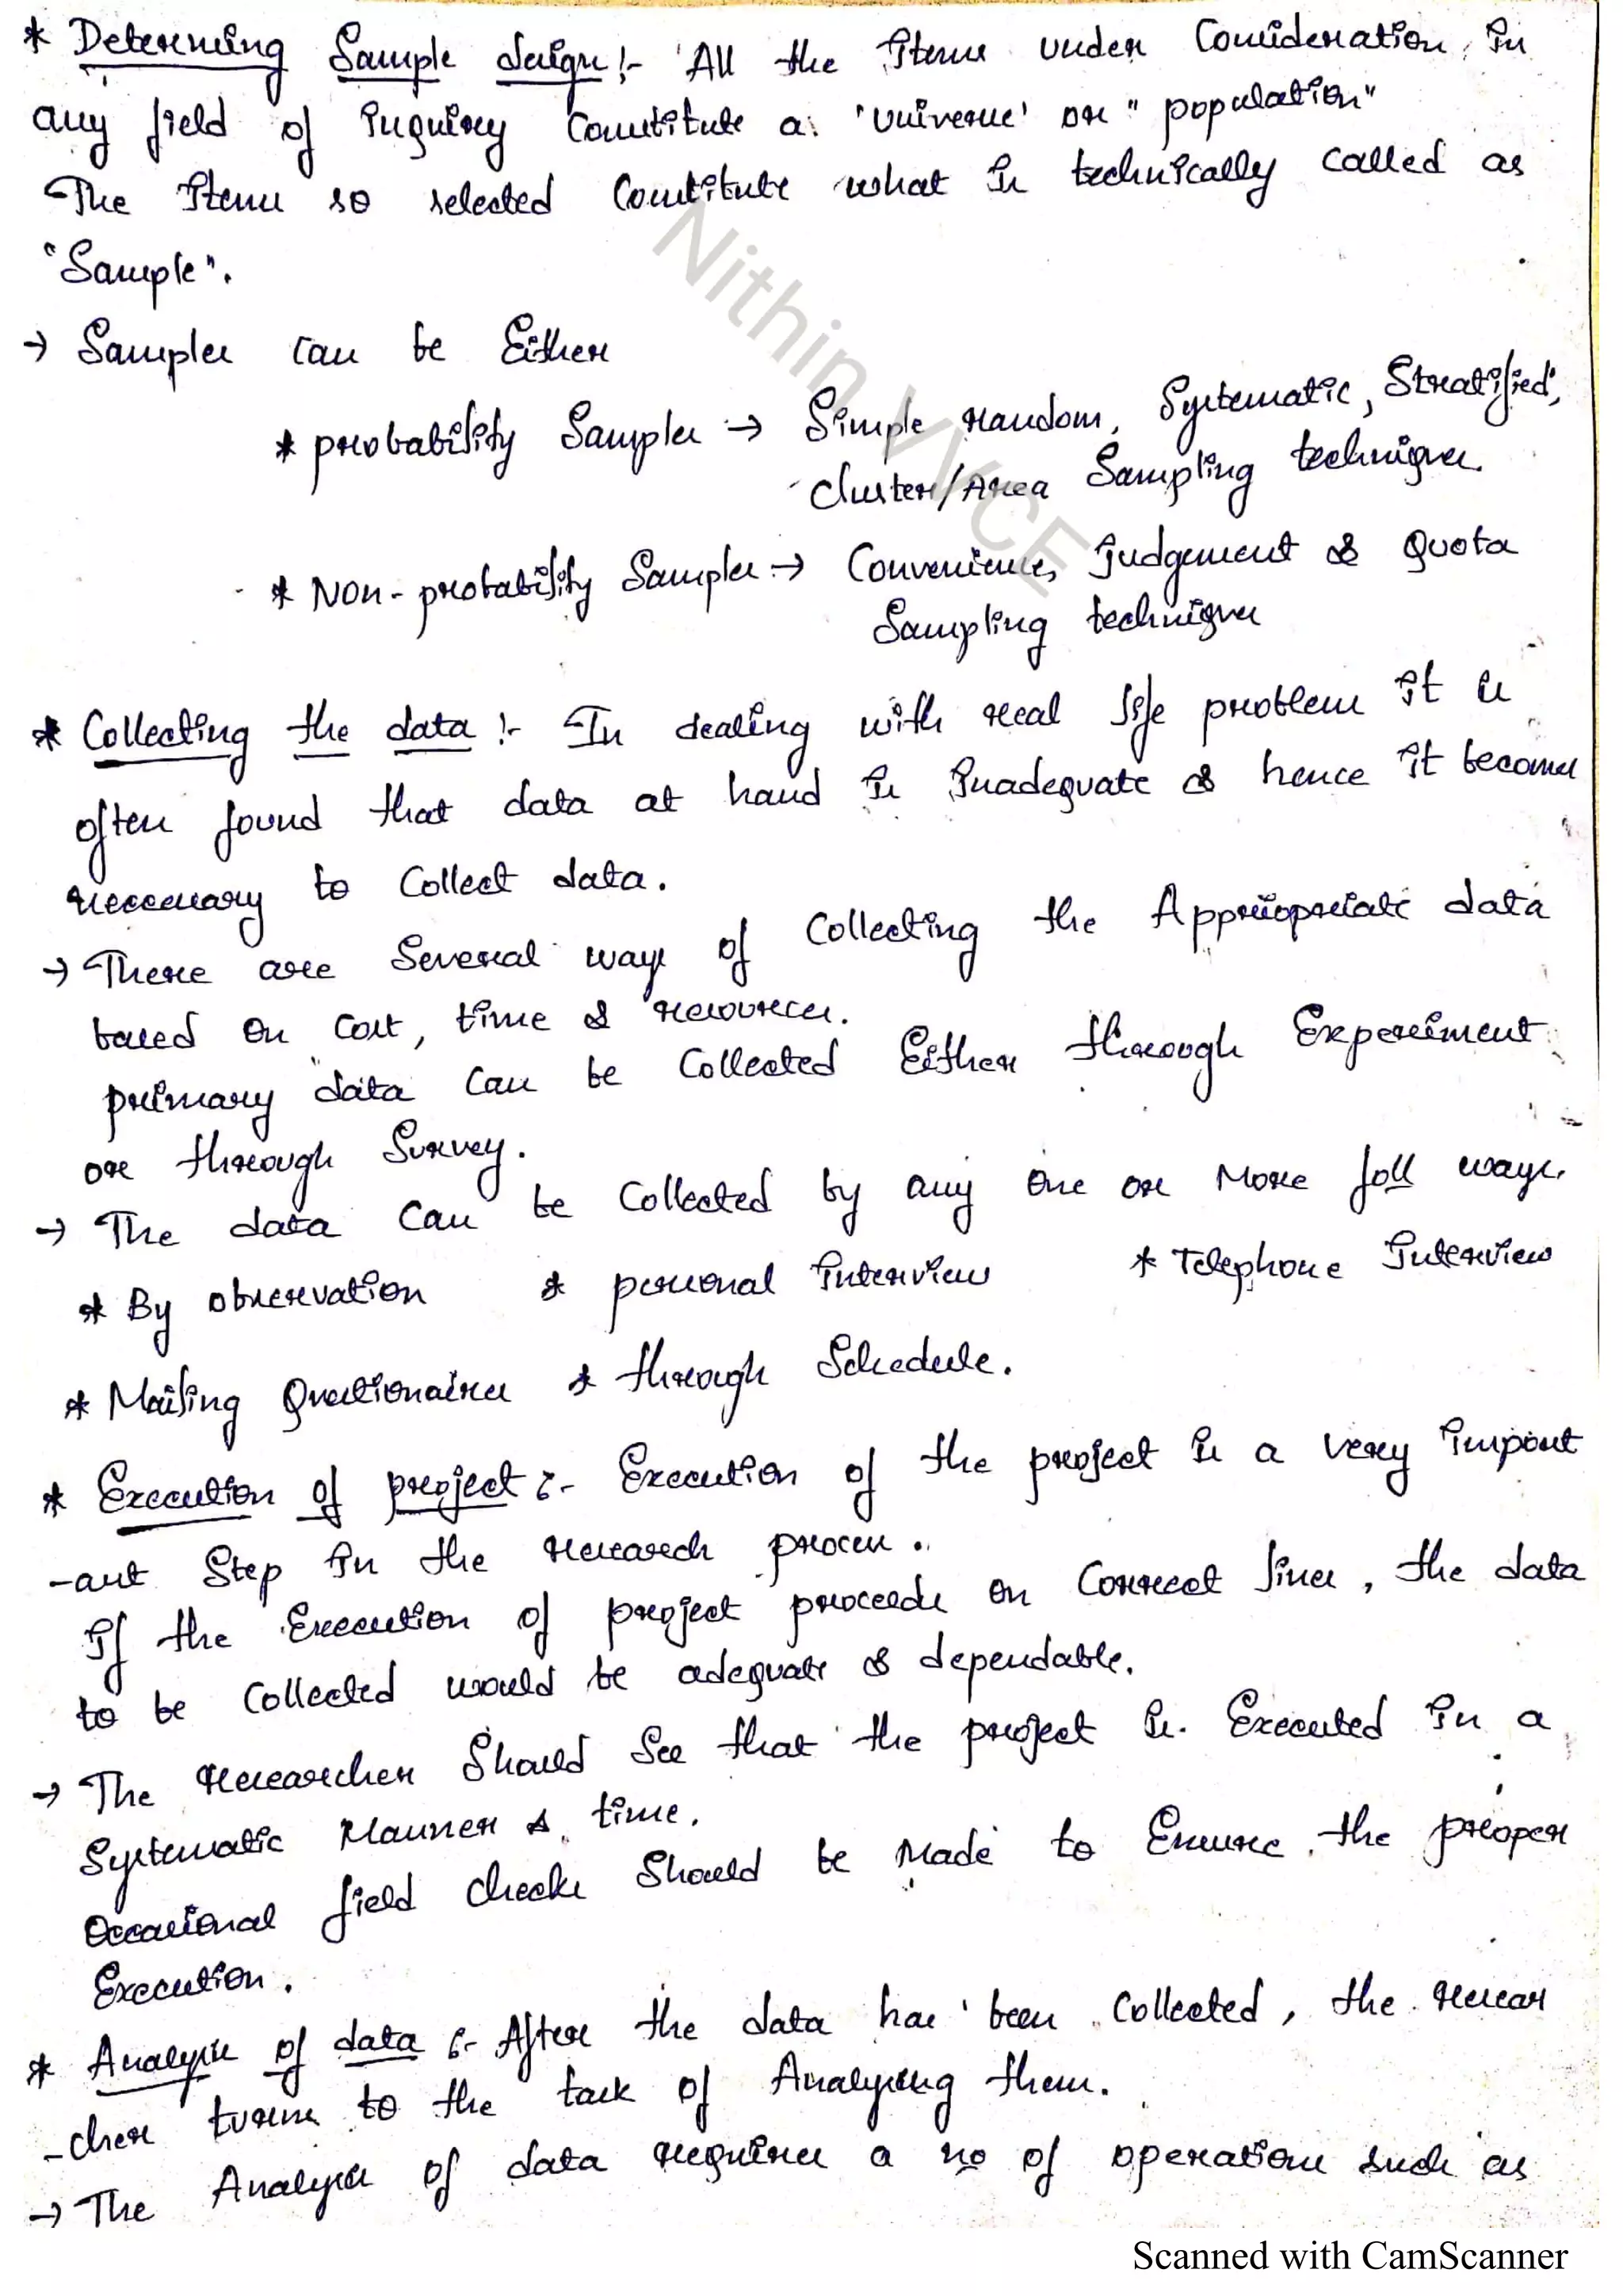 * Determing Sample design :- All the items under Consideration in
any field of inquiry Constitute a 'universe' or "population"
The items so selected Constitute what is technically called as
"Sample".
→ Samples can be Either
* probability Samples → Simple random, Systematic, Stratified,
cluster/Area Sampling techniques.
* Non-probability Samples → Convenience, judgement & Quota
Sampling techniques
* Collecting the data :- In dealing with real life problem it is
often found that data at hand is inadequate & hence it becomes
necessary to Collect data.
→ There are Several ways of Collecting the Appropriate data
based on Cost, time & resources.
primary data Can be Collected Either through Experiment
or through Survey.
→ The data Can be Collected by any one or More foll ways.
* By observation * personal interview * Telephone Interview
* Mailing Questionaires * through Schedule.
* Execution of project :- Execution of the project is a very import
-ant Step in the research process.
If the Execution of project proceeds on Correct lines, the data
to be Collected would be adequate & dependable.
→ The researcher Should See that the project is Executed in a
Systematic Manner & time.
Occasional field checks Should be Made to Ensure the proper
Execution.
* Analysis of data :- After the data has been Collected, the resear
-cher turns to the task of Analysing them.
→ The Analysis of data requires a no of operations such as
Nithin VVCE
Scanned with CamScanner